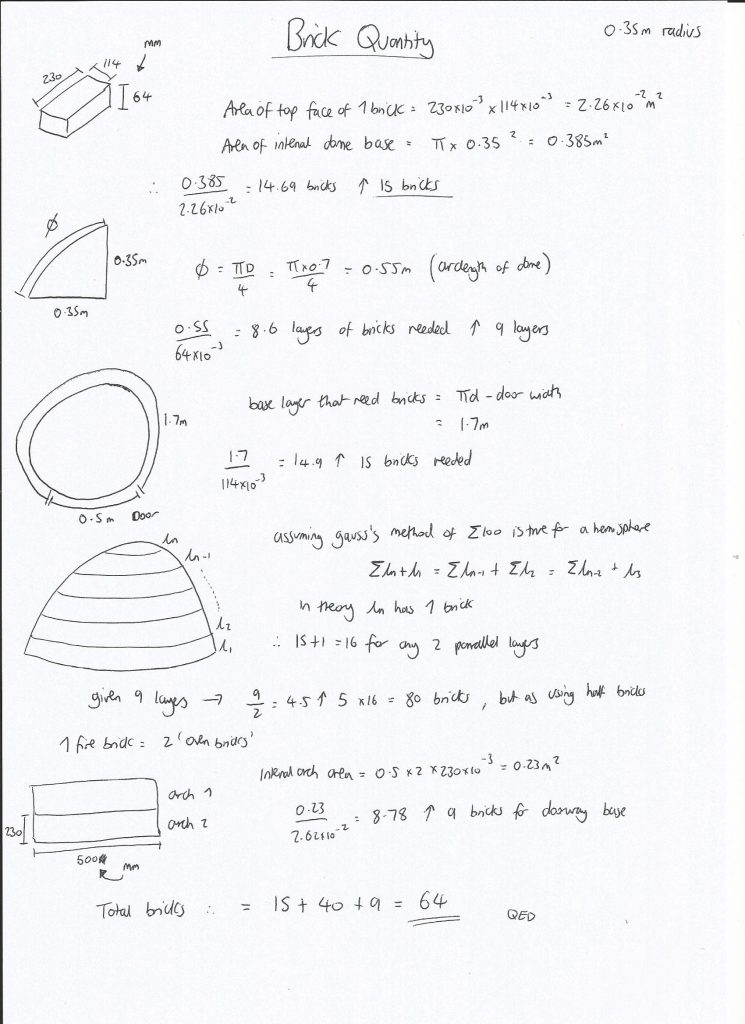 Brick Quantity
0.35m radius
mm
230
114
64
Area of top face of 1 brick = 230x10⁻³ x 114x10⁻³ = 2.26x10⁻² m²
Area of internal dome base = π x 0.35² = 0.385m²
∴ 0.385 / 2.26x10⁻² = 14.69 bricks ↑ 15 bricks
φ
0.35m
0.35m
φ = πD/4 = πx0.7/4 = 0.55m (arclength of dome)
0.55 / 64x10⁻³ = 8.6 layers of bricks needed ↑ 9 layers
1.7m
0.5m Door
base layer that need bricks = πd - door width
= 1.7m
1.7 / 114x10⁻³ = 14.9 ↑ 15 bricks needed
assuming gauss's method of Σ100 is true for a hemisphere
ln
ln-1
l2
l1
Σln + l1 = Σln-1 + Σl2 = Σln-2 + l3
In theory ln has 1 brick
∴ 15+1 = 16 for any 2 parrallel layers
given 9 layers → 9/2 = 4.5 ↑ 5 x16 = 80 bricks, but as using half bricks
1 fire brick = 2 'oven bricks'
Internal arch area = 0.5 x 2 x 230x10⁻³ = 0.23m²
arch 1
arch 2
230
500
mm
0.23 / 2.62x10⁻² = 8.78 ↑ 9 bricks for doorway base
Total bricks ∴ = 15 + 40 + 9 = 64
QED